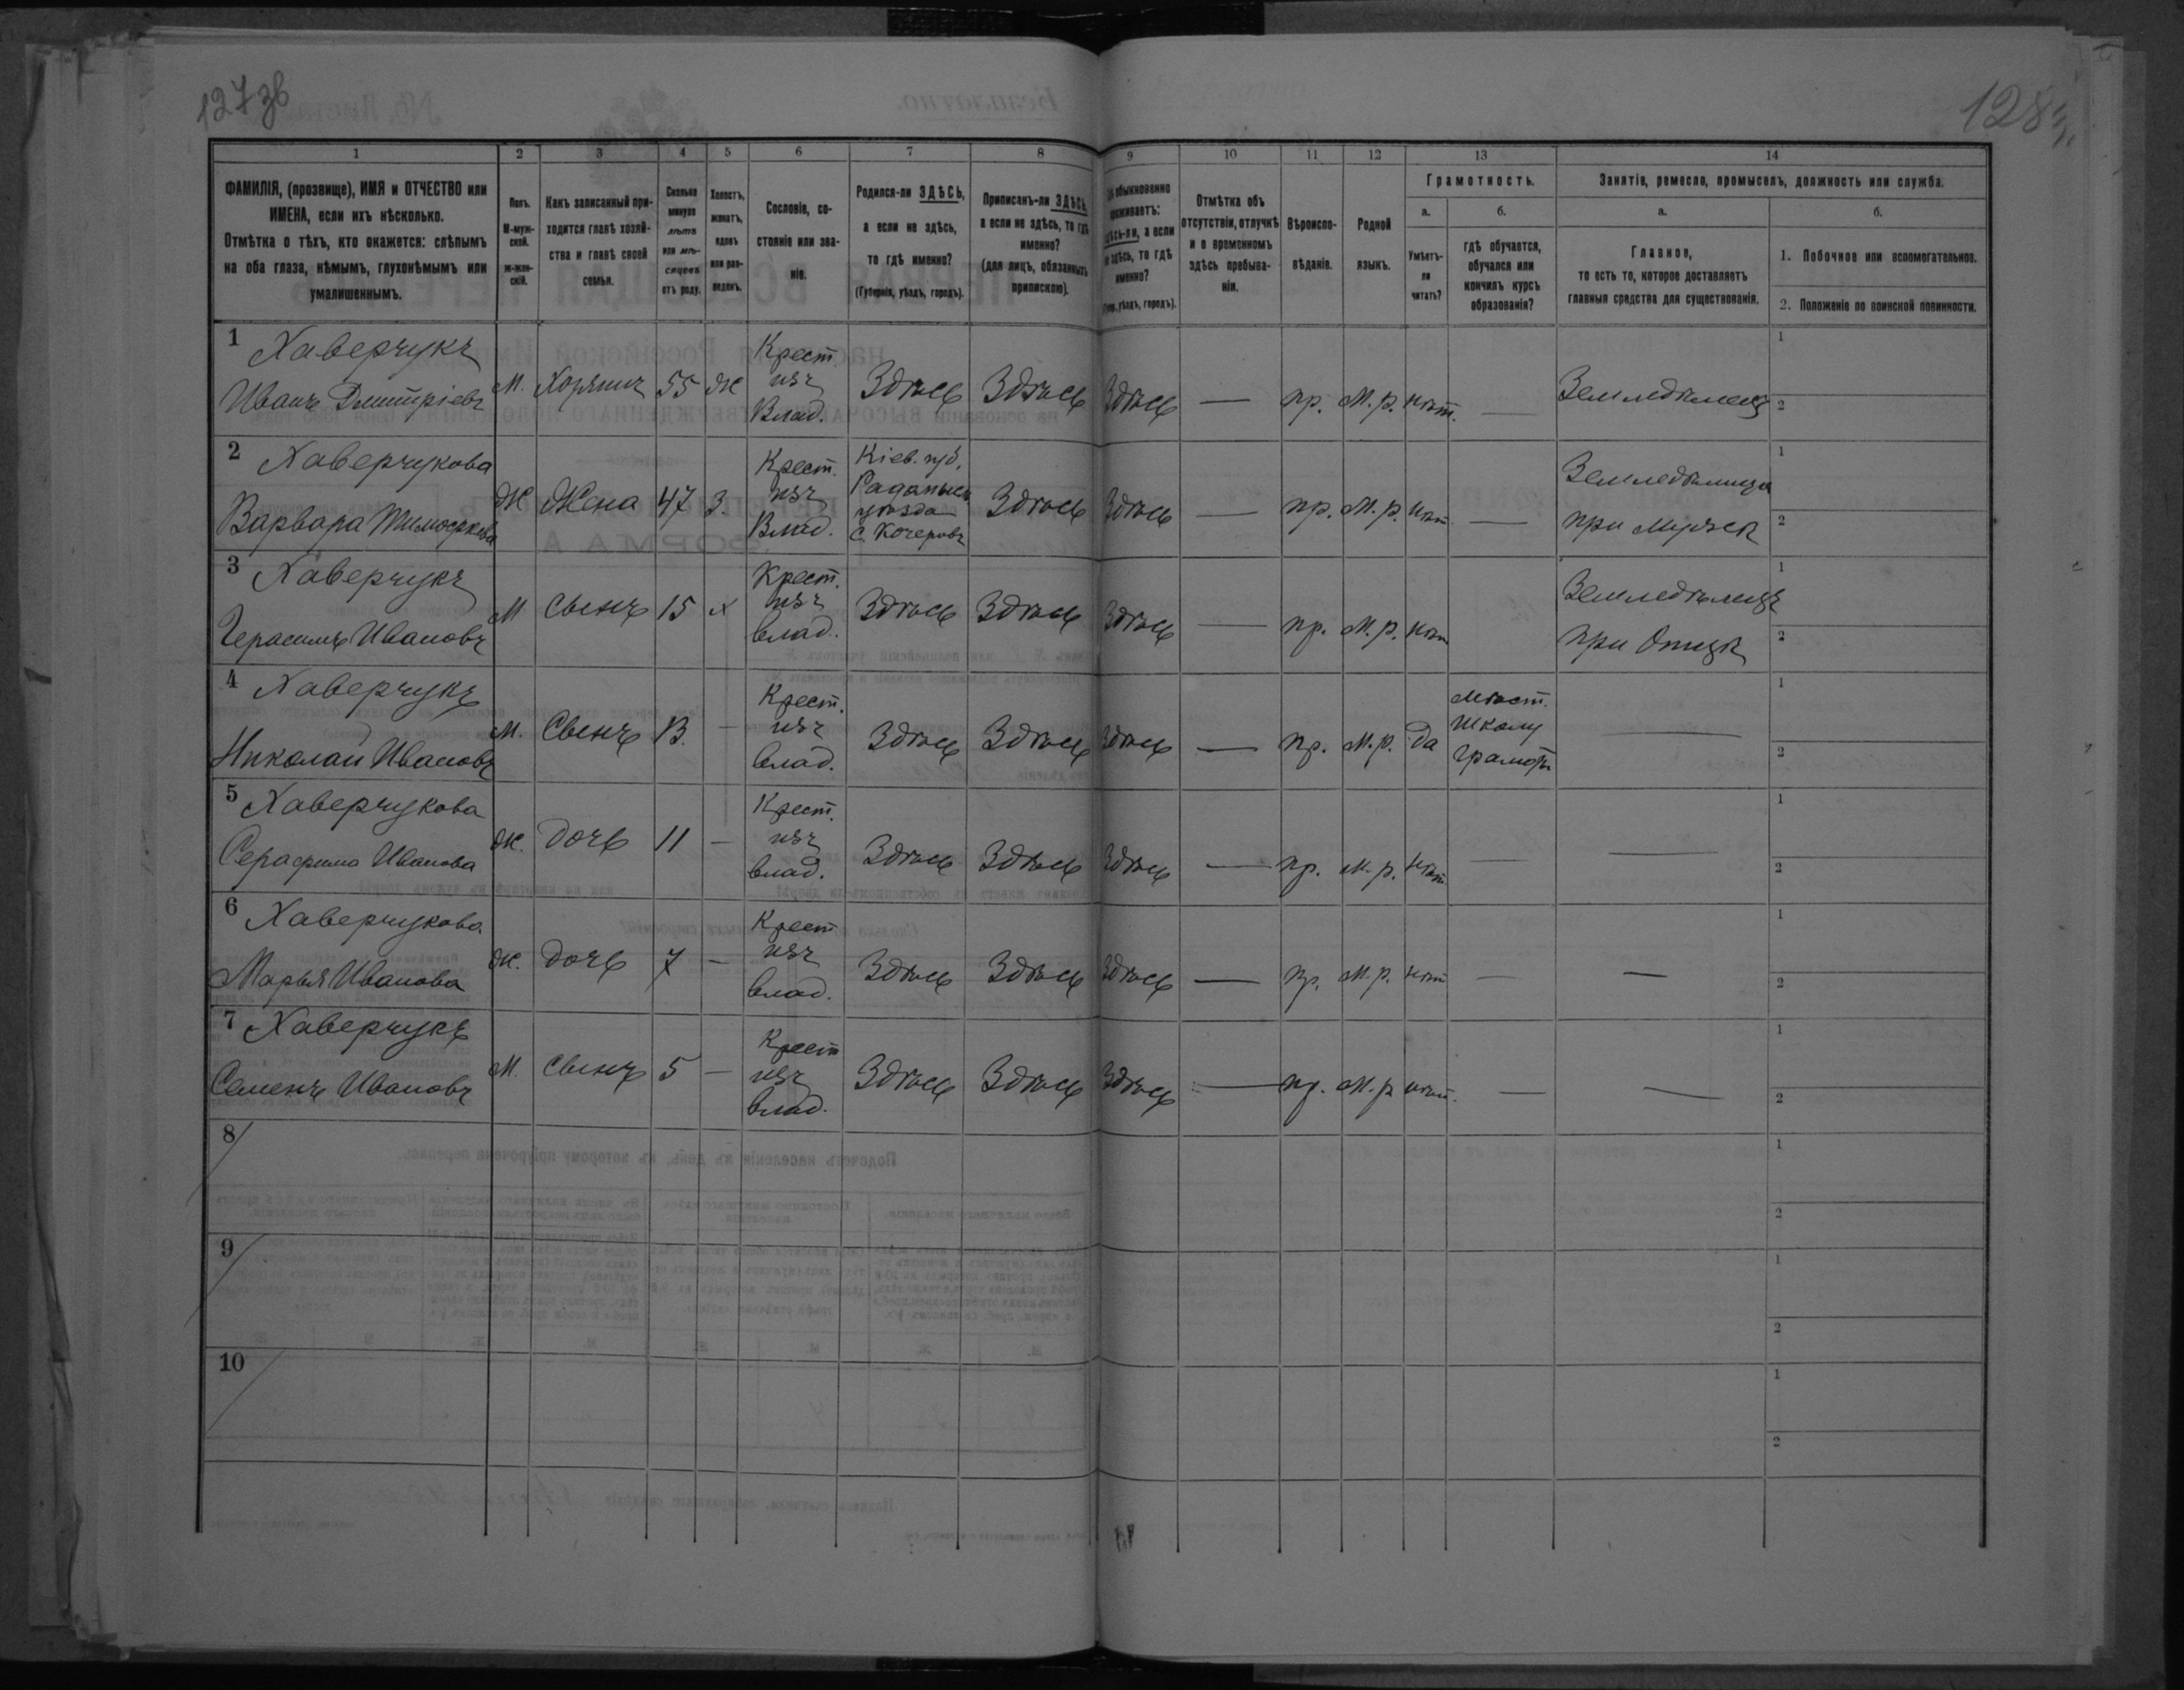 127 зв
128
1 2 3 4 5 6 7 8 9 10 11 12 13 14
ФАМИЛІЯ, (прозвище), ИМЯ и ОТЧЕСТВО или
ИМЕНА, если ихъ нѣсколько.
Отмѣтка о тѣхъ, кто окажется: слѣпымъ
на оба глаза, нѣмымъ, глухонѣмымъ или
умалишеннымъ.
Полъ.
М-муж-
ской.
ж-жен-
скій.
Какъ записанный при-
ходится главѣ хозяй-
ства и главѣ своей
семьи.
Сколько
минуло
лѣтъ
или мѣ-
сяцевъ
отъ роду.
Холостъ,
женатъ,
вдовъ
или раз-
веденъ.
Сословіе, со-
стояніе или зва-
ніе.
Родился-ли ЗДѢСЬ,
а если не здѣсь,
то гдѣ именно?
(Губернія, уѣздъ, городъ).
Приписанъ-ли ЗДѢСЬ,
а если не здѣсь, то гдѣ
именно?
(для лицъ, обязанныхъ
припискою).
обыкновенно
проживаетъ:
здѣсь-ли, а если
не здѣсь, то гдѣ
именно?
уѣздъ, городъ).
Отмѣтка объ
отсутствіи, отлучкѣ
и о временномъ
здѣсь пребыва-
ніи.
Вѣроиспо-
вѣданіе.
Родной
языкъ.
Грамотность.
а.
Умѣетъ-
ли
читать?
б.
гдѣ обучается,
обучался или
кончилъ курсъ
образованія?
Занятіе, ремесло, промыселъ, должность или служба.
а.
Главное,
то есть то, которое доставляетъ
главныя средства для существованія.
б.
1. Побочное или вспомогательное.
2. Положеніе по воинской повинности.
1 Хаверчукъ
Иванъ Дмитріевъ
М. Хозяинъ 55 Ж
Крест
изъ
Влад.
Здѣсь Здѣсь Здѣсь — пр. М.р. нѣт. —
Земледѣлецъ
1
2
2 Хаверчукова
Варвара Тимофѣева
Ж Жена 47 З.
Крест.
изъ
Влад.
Кіев. губ.
Радомыс
уѣзда
с. Кочеровъ
Здѣсь Здѣсь — пр. М.р. нѣт —
Земледѣлица
при мужѣ
1
2
3 Хаверчукъ
Герасимъ Ивановъ
М Сынъ 15 х
Крест.
изъ
влад.
Здѣсь Здѣсь Здѣсь — пр. М.р. нѣт
Земледѣлецъ
при Отцѣ
1
2
4 Хаверчукъ
Николай Ивановъ
М. Сынъ 13. —
Крест.
изъ
влад.
Здѣсь Здѣсь Здѣсь — пр. М.р. да
мѣст.
школу
грамоты
—
1
2
5 Хаверчукова
Серафима Иванова
Ж. дочь 11 —
Крест.
изъ
влад.
Здѣсь Здѣсь Здѣсь — пр. М.р. нѣт — —
1
2
6 Хаверчукова
Марья Иванова
Ж. дочь 7 —
Крест
изъ
влад.
Здѣсь Здѣсь Здѣсь — пр. М.р. нѣт — —
1
2
7 Хаверчукъ
Семенъ Ивановъ
М. Сынъ 5 —
Крест
изъ
влад.
Здѣсь Здѣсь Здѣсь — пр. М.р нѣт. — —
1
2
8
1
2
9
1
2
10
1
2